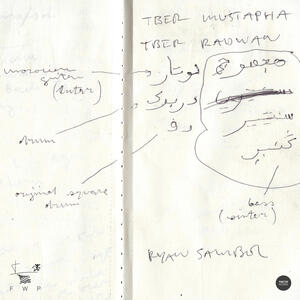 TBER MUSTAPHA
TBER RADWAN
moroccan
guitar
(lutar)
لوتار و
دربوكة و
دف
سنتير
كبير
drum
original square
drum
bass
(sinter)
RYAN SAMBOL
F W P